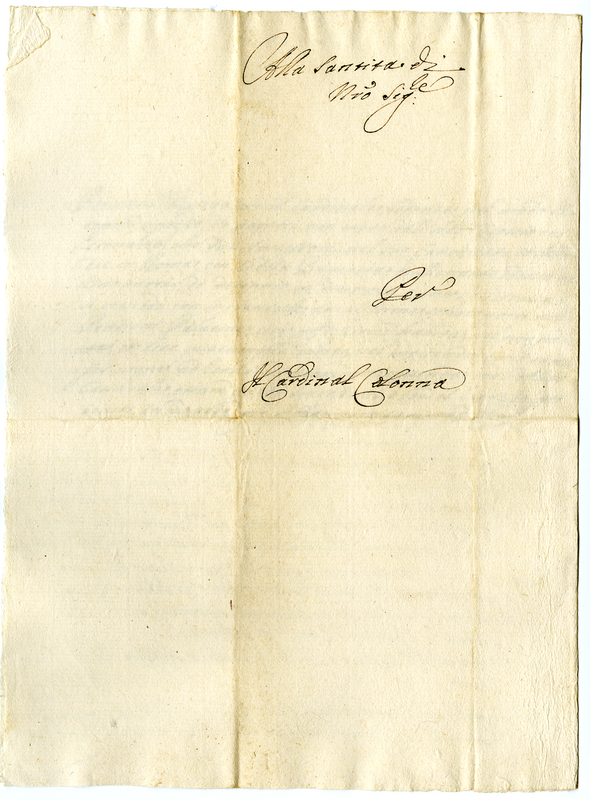 Alla Santita di
Nrõ Sigre
Per
Il Cardinal Colonna